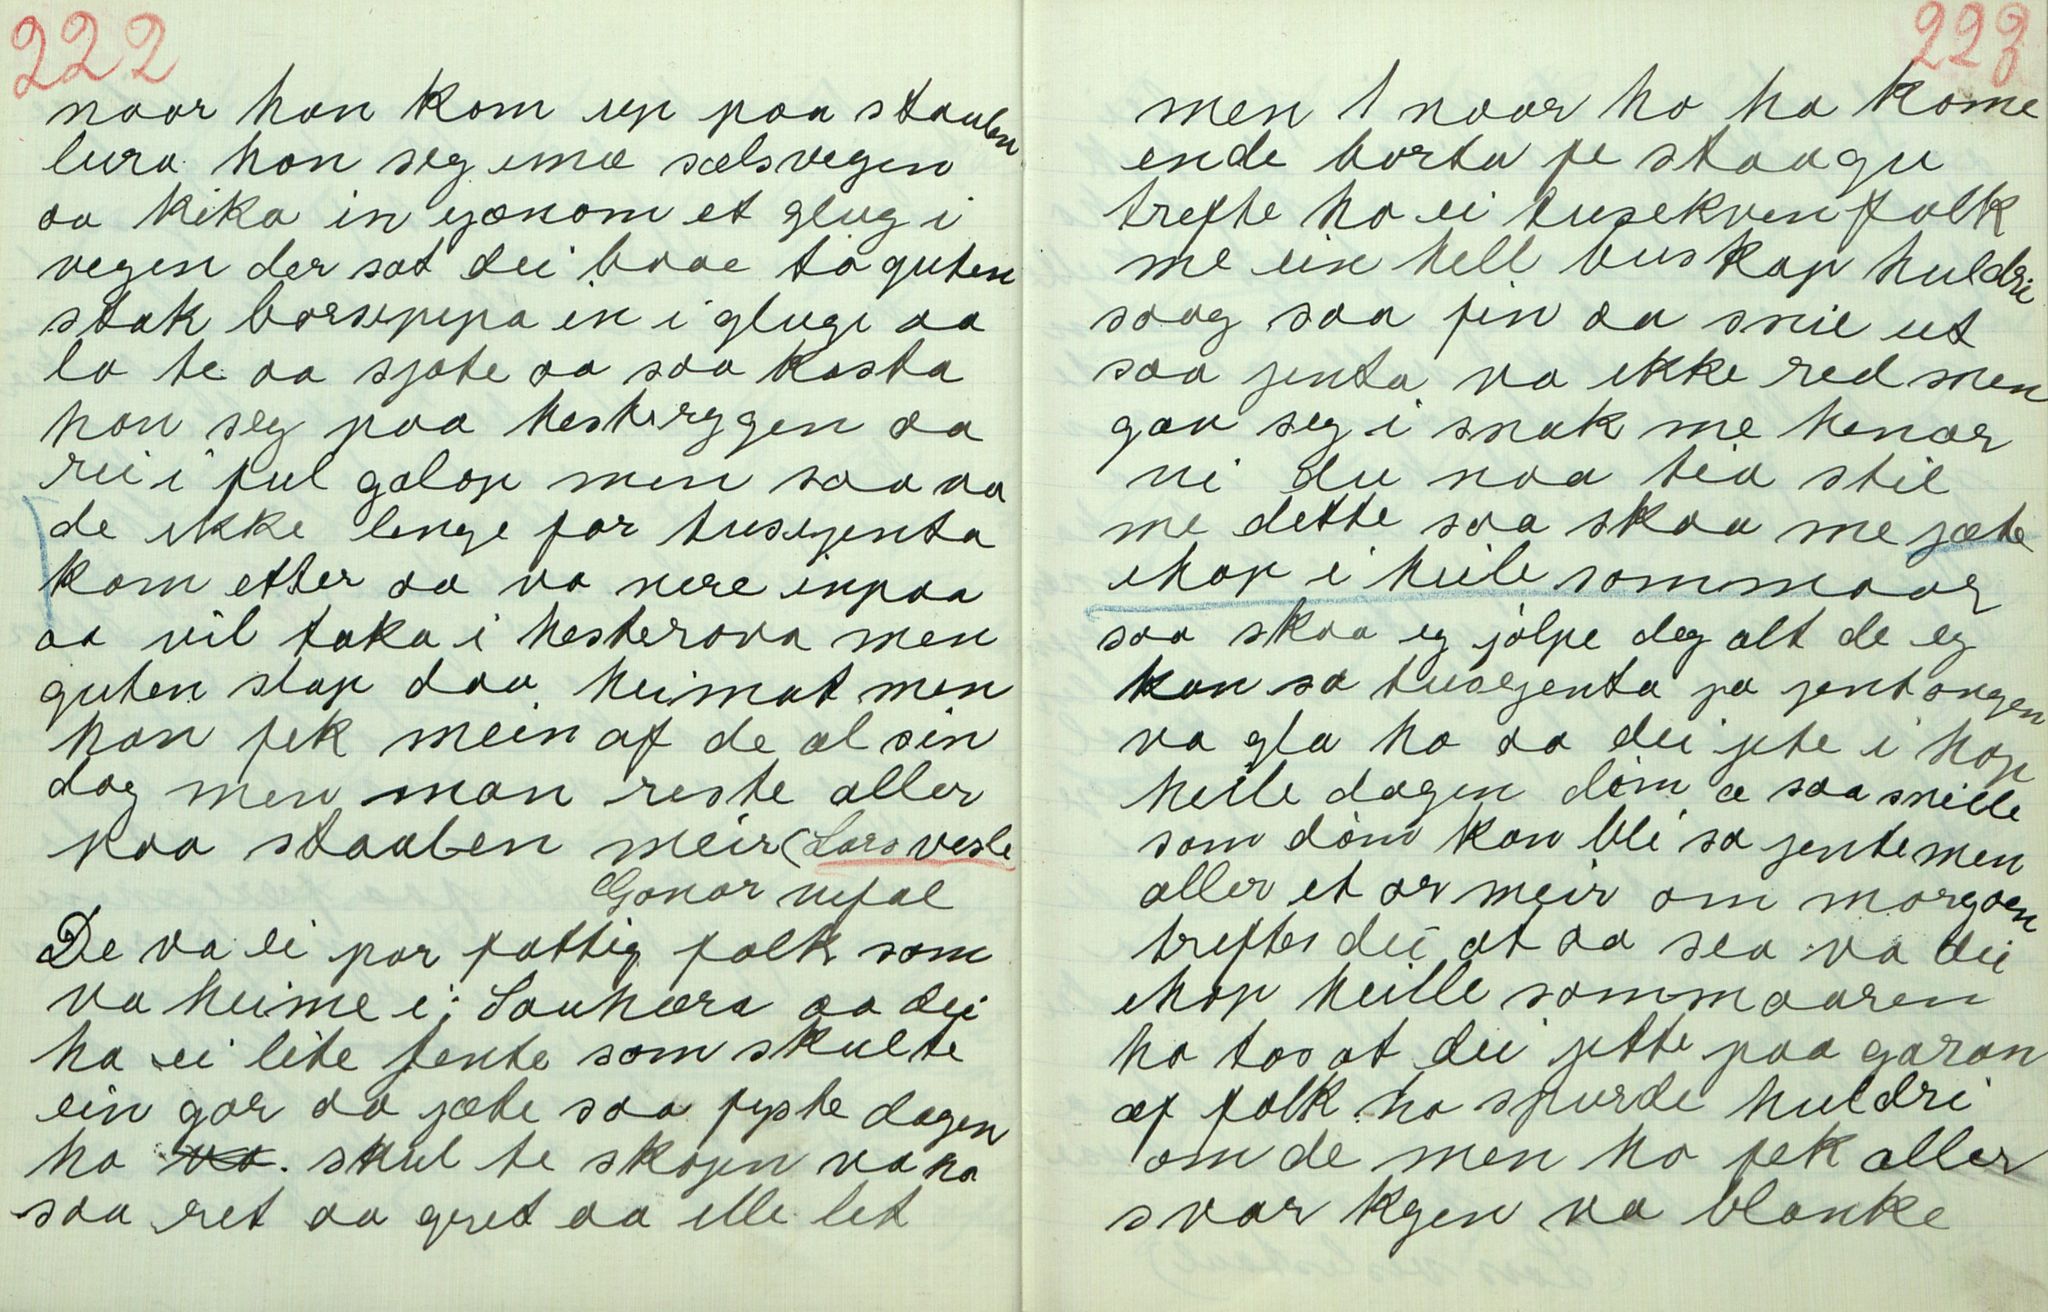 222
naar han kom up paa staulen
lura han seg imæ sælsvegen
aa kika in gjænom et glug i
vegen der sat dei baae to guten
stak borsepipa in i glugi aa
la te aa sjøte aa saa kasta
han seg paa hesteryggen aa
rei i ful galop men saa va
de ikke lenge for tusejenta
kom etter aa va nere inpaa
aa vil taka i hesterova men
guten slap daa heimat men
han fek mein af de al sin
dag men man reste aller
paa staulen meir (Lars vesle
Gonar nefal
De va ei par fattig folk som
va heime i; Sauhæra aa dei
ha ei lite jente som skulte
ein gar aa jæte saa fyste dagen
ho va. skul te skogen va ho
saa ret aa gret aa ille let
223
men 1 naar ho ha kome
ende borta pe staagu
trefte ho ei tusekvenfolk
me ein hell buskap huldri
saag saa fin aa snil ut
saa jenta va ikke red men
gav seg i snak me henar
vi du naa tia stil
me dette saa skaa me jæte
ihop i heile sommaar
saa skaa eg jølpe deg alt de eg
kan sa tusejenta ja jentongen
va gla ho aa dei jete i hop
heile dagen døm æ saa snille
som døm kan bli sa jente men
aller et or meir om morgoen
treftes dei at aa sea va dei
ihop heille sommaaren
ho tos at dei jette paa garan
æf folk ho spurde huldri
om de men ho fek aller
svar kyen va blanke